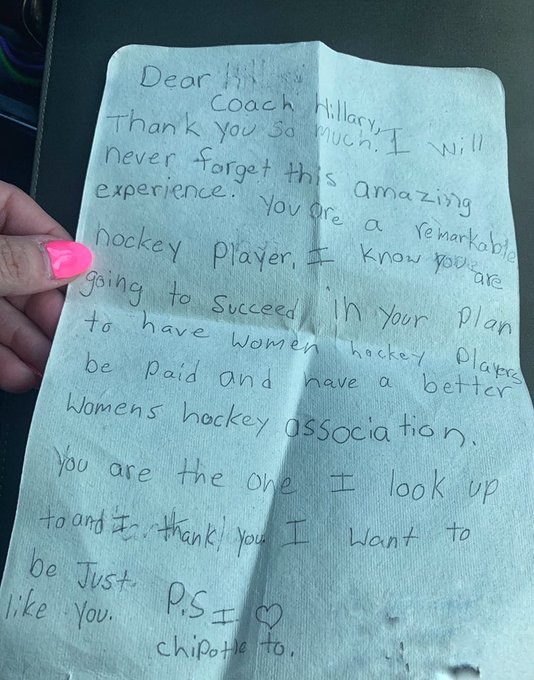 Dear
Coach Hillary,
Thank you so much. I will
never forget this amazing
experience. You are a remarkable
hockey player. I know you are
going to succeed in your plan
to have women hockey players
be paid and have a better
womens hockey association.
You are the one I look up
to and I thank you I want to
be Just
like you.
P.S I ♡
chipotle to.